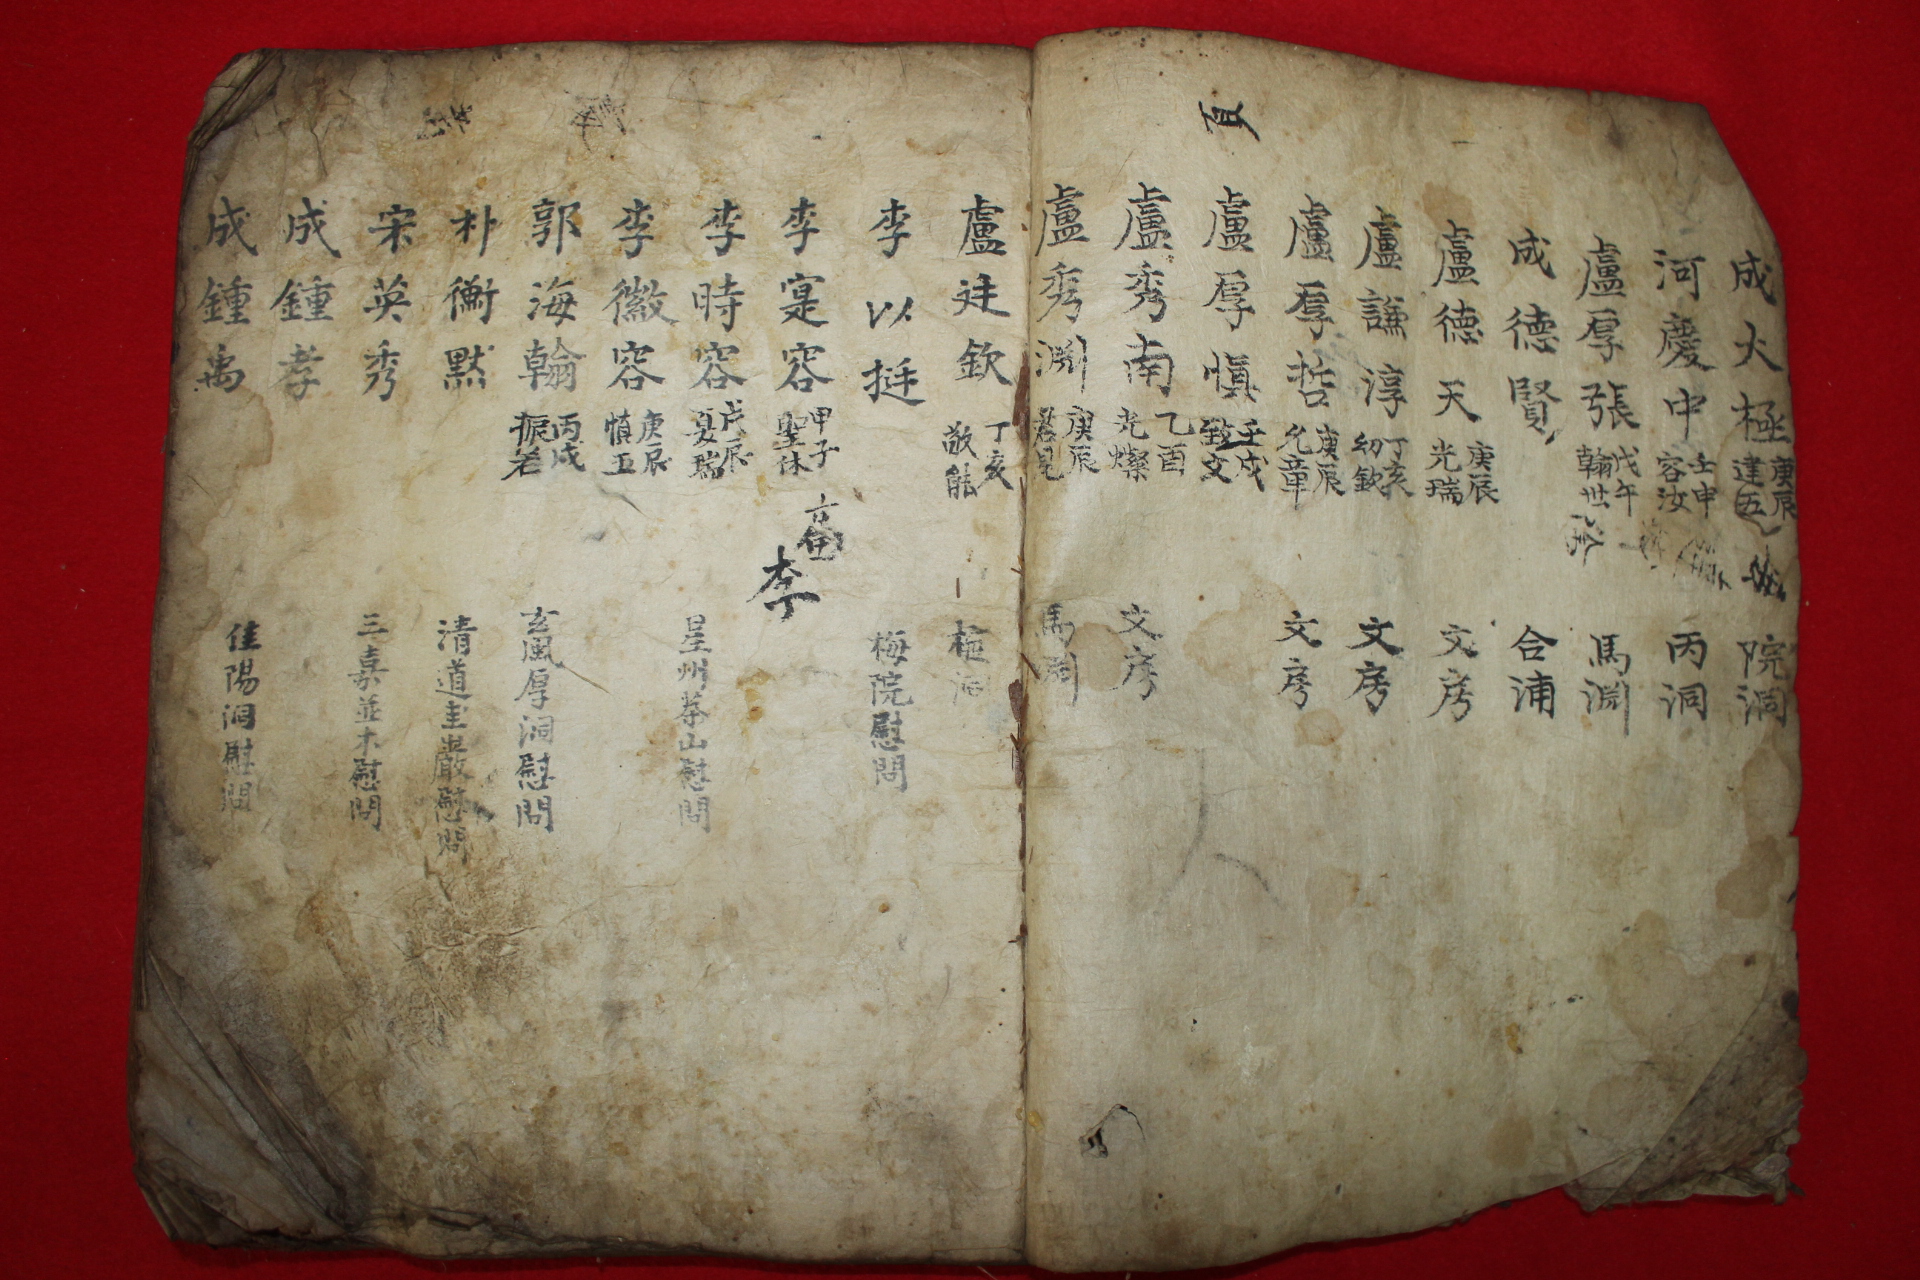 成大極 庚辰 達五 院洞
河慶中 壬申 容汝 丙洞
盧厚張 戊午 翰世 馬淵
成德賢 合浦
盧德天 庚辰 光瑞 文房
盧謙淳 丁亥 幼欽 文房
盧厚哲 庚辰 允章 文房
盧厚愼 壬戌 致文
盧秀南 乙酉 光燦 文房
盧秀淵 庚辰 君見 馬淵
盧廷欽 丁亥 敬能 洞
李以挺 梅院慰問
李寔容 甲子 聖休
李
李時容 戊辰 夏瑞 星州茶山慰問
李徽容 庚辰 愼五
郭海翰 丙戌 振若 玄風厚洞慰問
朴衡黙 清道圭巖慰問
宋英秀 三嘉並木慰問
成鍾孝
成鍾禹 佳陽洞慰問